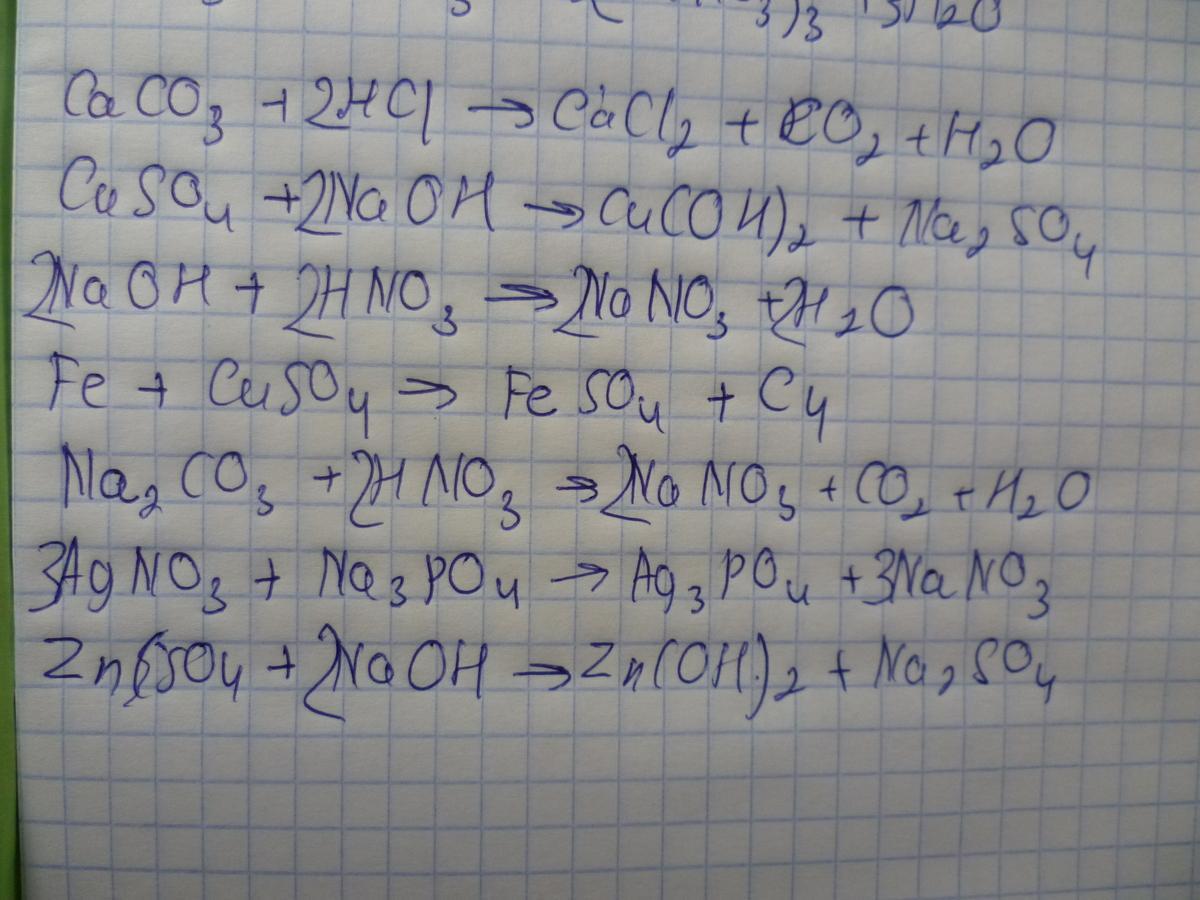 CaCO₃ + 2HCl → CaCl₂ + CO₂ + H₂O
CuSO₄ + 2NaOH → Cu(OH)₂ + Na₂SO₄
2NaOH + 2HNO₃ → 2NaNO₃ + 2H₂O
Fe + CuSO₄ → FeSO₄ + Cu
Na₂CO₃ + 2HNO₃ → 2NaNO₃ + CO₂ + H₂O
3AgNO₃ + Na₃PO₄ → Ag₃PO₄ + 3NaNO₃
ZnSO₄ + 2NaOH → Zn(OH)₂ + Na₂SO₄